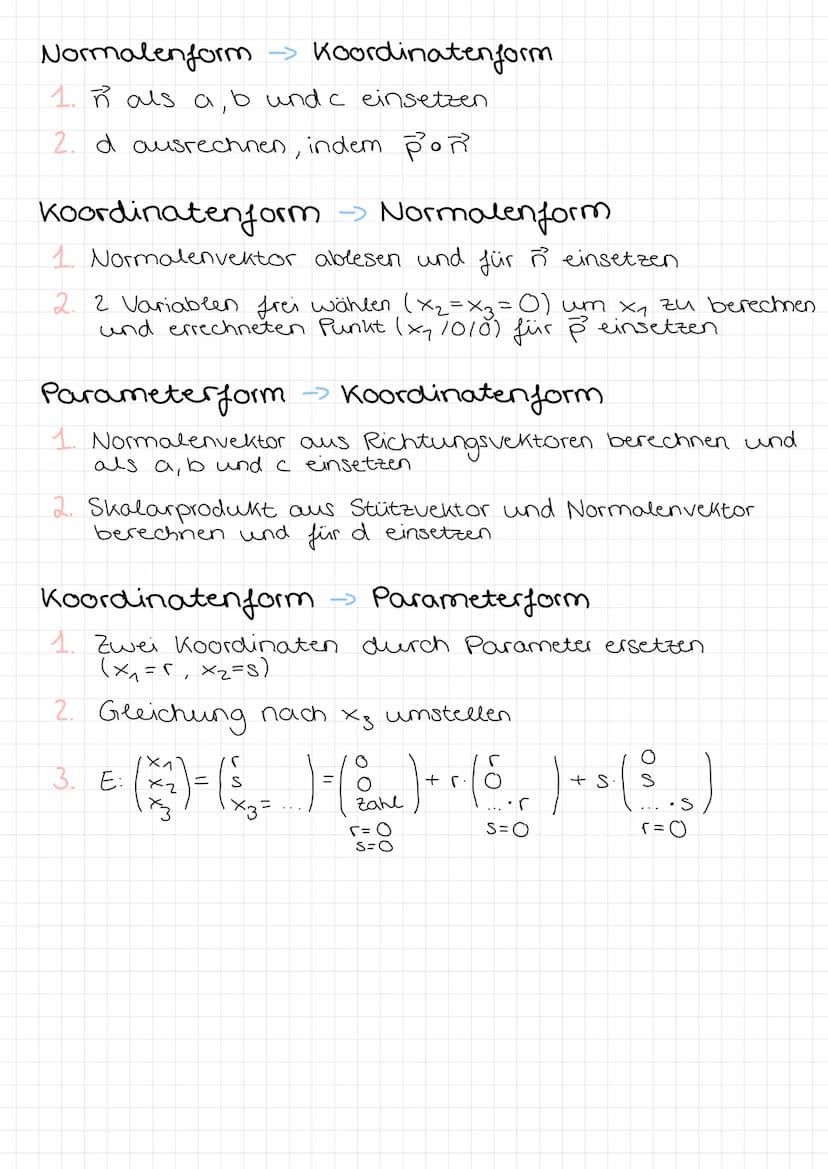 Normalenform → Koordinatenform
1. n⃗ als a, b und c einsetzen
2. d ausrechnen, indem p⃗ ∘ n⃗
Koordinatenform → Normalenform
1. Normalenvektor ablesen und für n⃗ einsetzen
2. 2 Variablen frei wählen (x₂=x₃=0) um x₁ zu berechnen
und errechneten Punkt (x₁/0/0) für p⃗ einsetzen
Parameterform → Koordinatenform
1. Normalenvektor aus Richtungsvektoren berechnen und
als a, b und c einsetzen
2. Skalarprodukt aus Stützvektor und Normalenvektor
berechnen und für d einsetzen
Koordinatenform → Parameterform
1. Zwei Koordinaten durch Parameter ersetzen
(x₁=r, x₂=s)
2. Gleichung nach x₃ umstellen
3. E: (x₁ x₂ x₃) = (r s x₃=...) = (0 0 Zahl) + r·(r 0 ...·r) + s·(0 s ...·s)
r=0 s=0 r=0
s=0